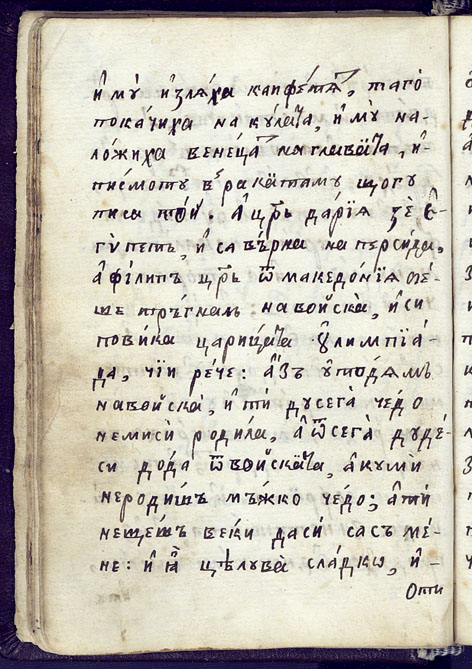 и҆мꙋ̀ и҆злѧ́ха каифе́тѧ, таго̀
пока́чиха на кꙋ́лата, и҆мꙋ̀ на-
ло́жиха венеца̀ на глава̀та, и҆-
писмото в̾ рака̀та мꙋ щогꙋ
писа то́й. а҆ цр҃ь да́рїѧ зѐ є҆-
гѵ́петь, и҆ са вь́рна на персі́да,
а҆ фі́липъ цр҃ь ѿ македо́нїѧ бе́-
ше тръ́гналь на войска̀, и҆ си
пови́ка цари́цата ѻ҆лимпїа́-
да, чїи ре́че: а҆́зъ ѿхо́дѧмъ
на войска̀, и҆ ти дꙋсега̀ че́до
не ми си роди́ла, а҆ ѿсега̀ дꙋде́-
си до́да ѿ войска̀та, а҆кꙋ мѝ
не роди́шъ мъ́жко че́до; а҆ ти́
не ще́шъ ве́ки да си́ сасъ ме́-
не: и҆ ꙗ҆̀ цѣлꙋва̀ сла́дкѡ, и҆-
ѻти